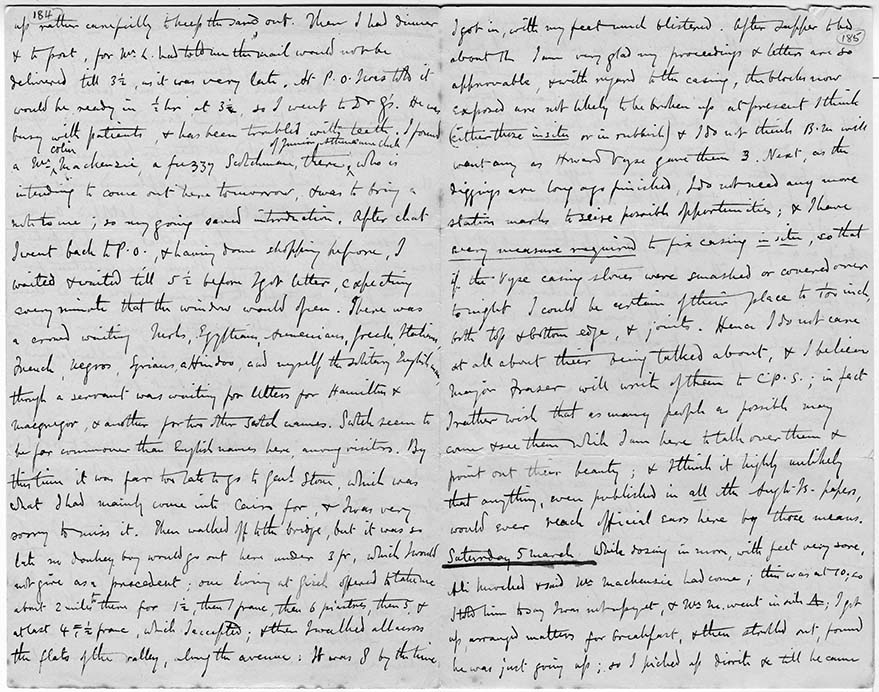 184
up rather carefully to keep the sand out. Then I had dinner
& to post, for Mr. L. had told me the mail would not be
delivered till 3½, as it was very late. At P.O. I was told it
would be ready in ½ hr at 3¾, so I went to Dr G's. He was
busy with patients, & has been troubled with teeth. I found
of Junior Athenaeum club
a Mr Colin Mackenzie a fuzzy Scotchman, there, who is
intending to come out here tomorrow, & was to bring a
note to me; so my going saved introduction. After chat
I went back to P.O., & having done shopping before, I
waited & waited till 5½ before I got letter, expecting
every minute that the window would open. There was
a crowd waiting Turks, Egyptians, Armenians, Greeks, Italians,
French, Negros, Syrians, a Hindoo, and myself the solitary English,
though a servant was waiting for letters for Hamilton &
Macgregor, & another for two other Scotch names. Scotch seem to
be far commoner than English names here among visitors. By
this time it was far too late to go to Genl. Stone, which was
what I had mainly come into Cairo for, & I was very
sorry to miss it. Then walked off to the bridge, but it was so
late no donkey boy would go out here under 3 fr, which I would
not give as a precedent; one living at Gizeh offered to take me
about 2 miles then for 1½, then 1 franc, then 6 piastres, then 5, &
at last 4 = ½ franc, which I accepted; & then I walked all across
the flats of the valley, along the avenue: It was 8 by the time
185
I got in, with my feet much blistered. After supper to bed
about 11. I am very glad my proceedings & letters are so
approvable, & with regard to the casing, the blocks now
exposed are not likely to be broken up at present I think
(either those in situ or in rubbish) & I do not think B.M. will
want any as Howard Vyse gave them 3. Next, as the
diggings are long ago finished, I do not need any more
station marks to seize possible opportunities; & I have
every measure required to fix casing in situ, so that
if the Vyse casing stones were smashed or covered over
tonight I could be certain of their place to 1/10 inch,
both top & bottom edge, & joints. Hence I do not care
at all about their being talked about, & I believe
Major Fraser will write of them to C.P.S.; in fact
I rather wish that as many people as possible may
come & see them while I am here to talk over them &
point out their beauty; & I think it highly unlikely
that anything, even published in all the Anglo-Is. papers,
would ever reach official ears here by those means.
Saturday 5 march While dosing in morn, with feet very sore,
Ali knocked & said Mr Mackenzie had come; this was at 10; so
I told him to say I was not up yet, & Mr M. went inside; I got
up, arranged matters for breakfast, & then strolled out, found
he was just going up; so I picked up diorite & till he came